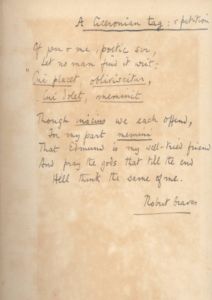 A Ciceronian tag: & petition
Of you & me, poetic sir,
Let no man find it writ:
"Cui placet obliviscitur,
Cui dolet, meminit
Though inscius we each offend,
For my part memini
That Edmund is my well-tried friend
And pray the gods that till the end
He'll think the same of me.
Robert Graves